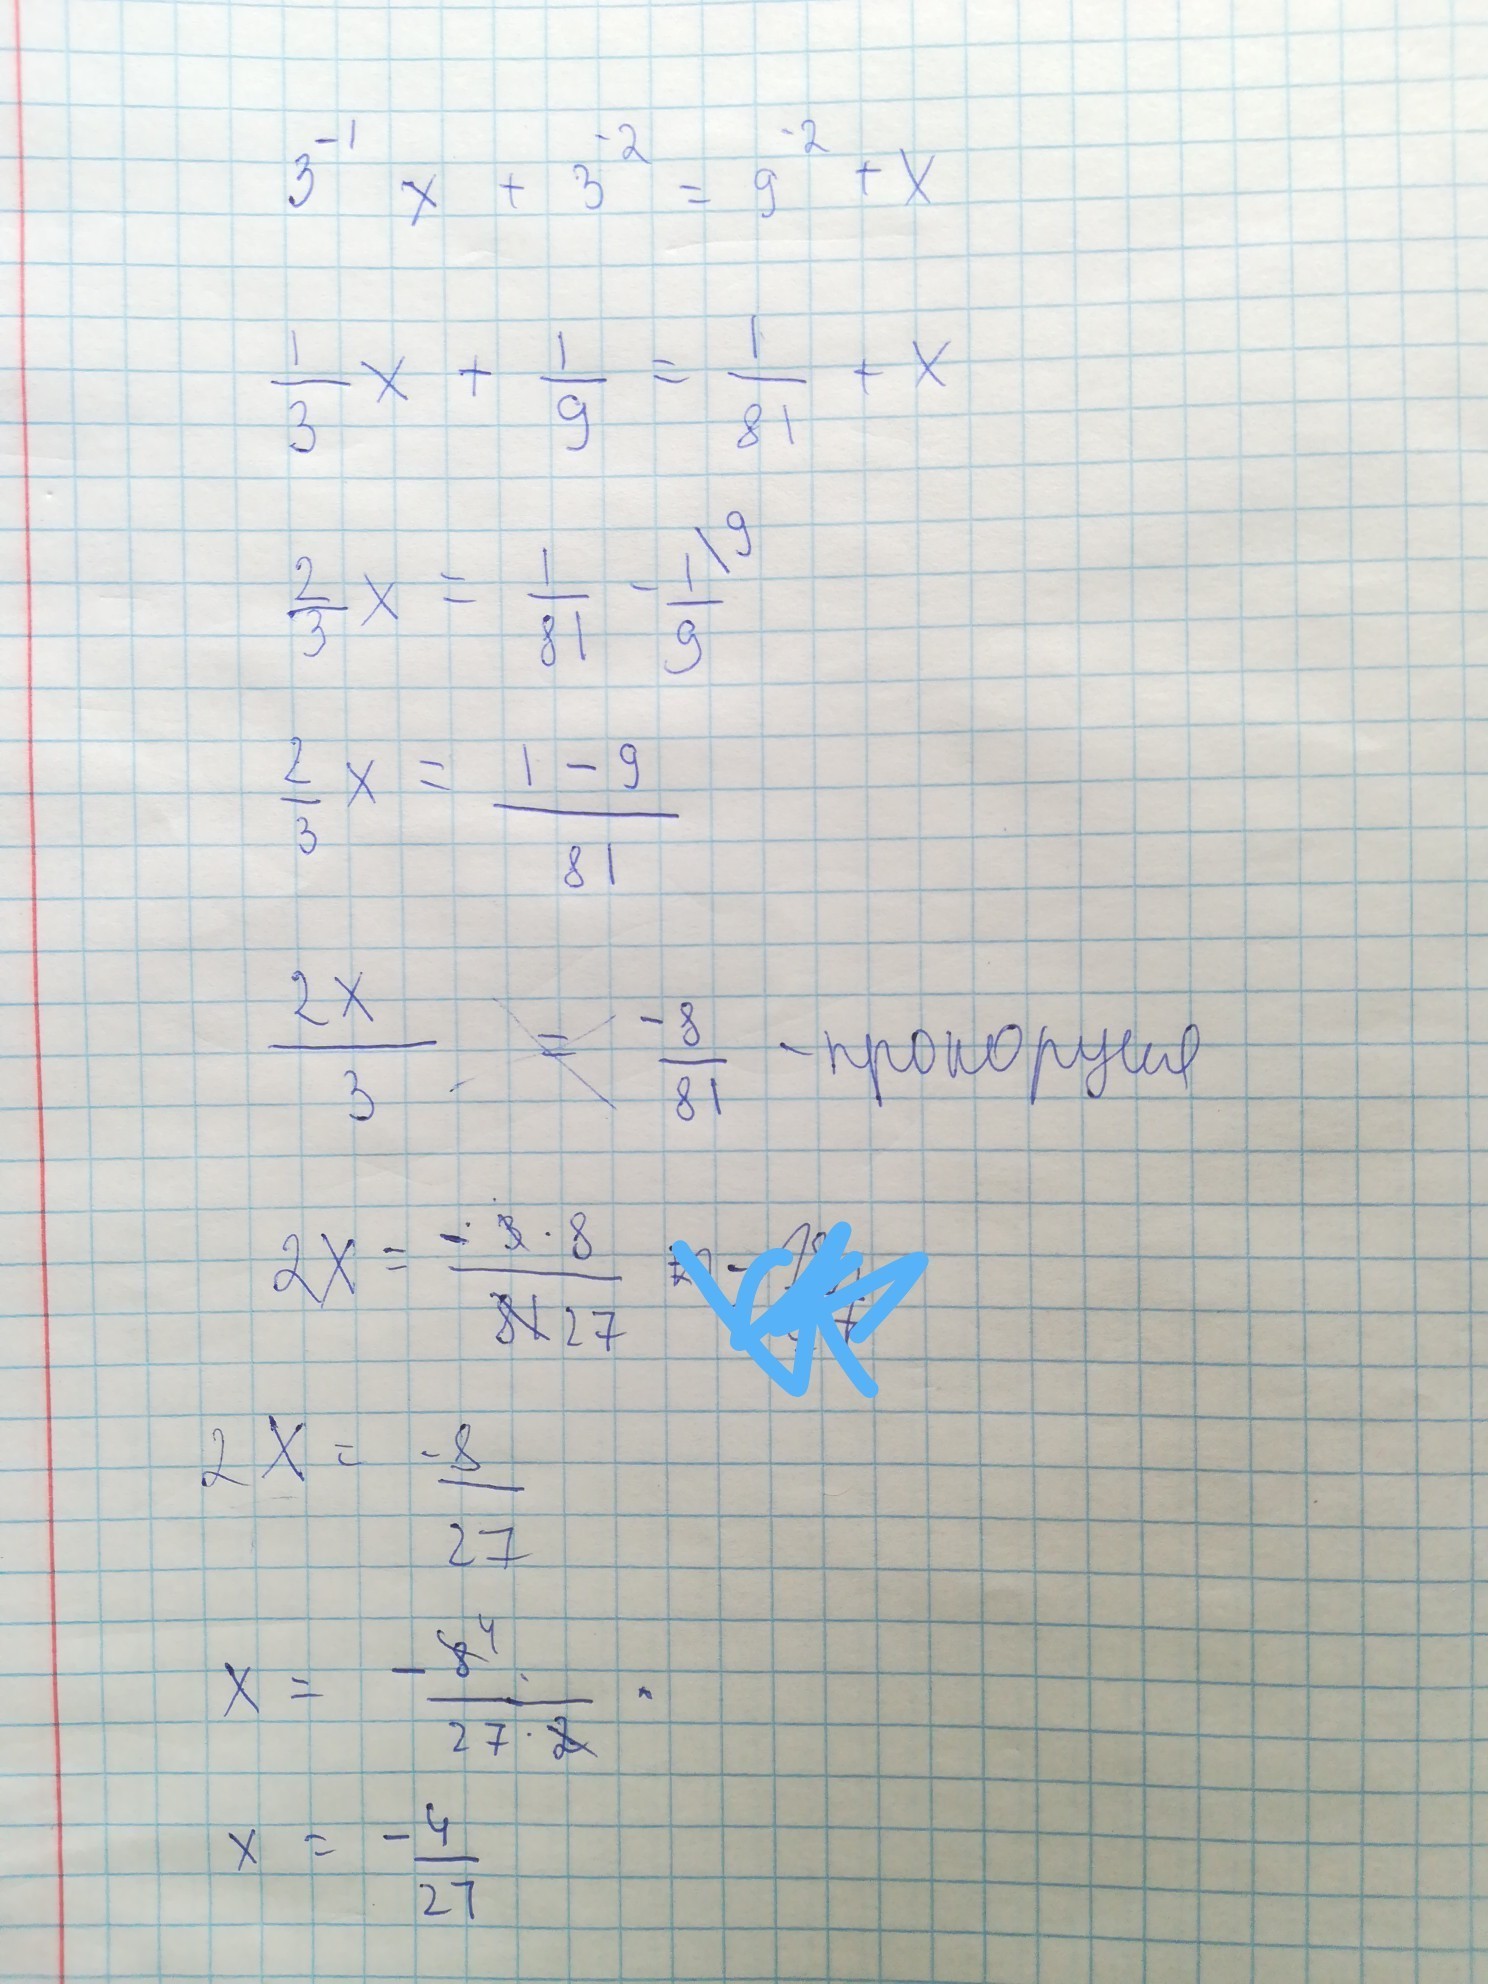 3⁻¹ x + 3⁻² = 9⁻² + x
1/3 x + 1/9 = 1/81 + x
2/3 x = 1/81 - 1\9/9
2/3 x = (1 - 9)/81
2x/3 = -8/81
2x = (-3 · 8)/(81 27)
2x = -8/27
x = - 8 4/(27 · 2)
x = - 4/27